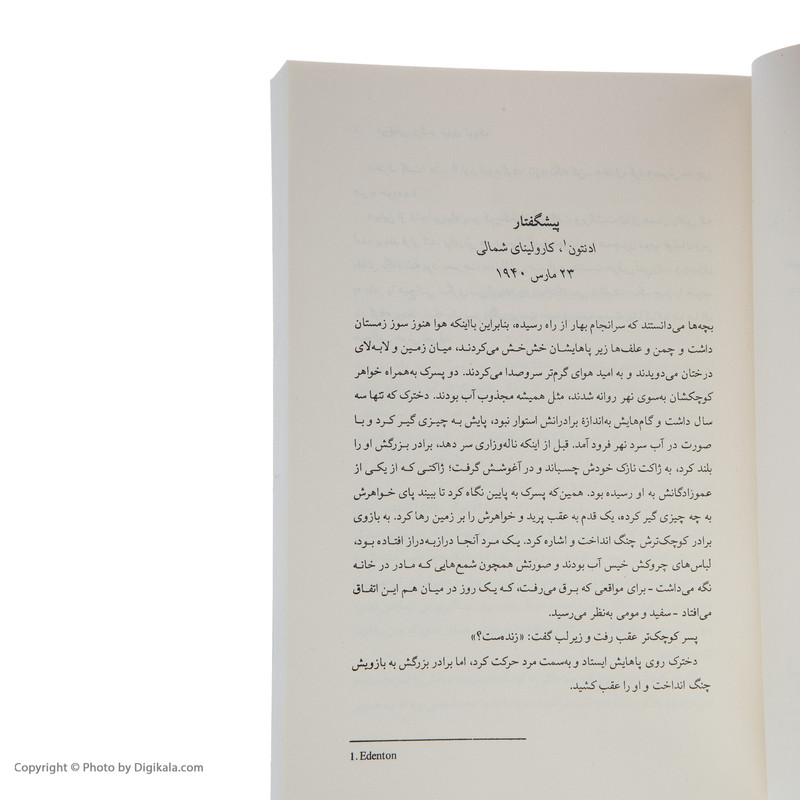 پیشگفتار
ادنتون۱، کارولینای شمالی
۲۳ مارس ۱۹۴۰
بچه‌ها می‌دانستند که سرانجام بهار از راه رسیده، بنابراین بااینکه هوا هنوز سوز زمستان
داشت و چمن و علف‌ها زیر پاهایشان خش‌خش می‌کردند، میان زمین و لابه‌لای
درختان می‌دویدند و به امید هوای گرم‌تر سروصدا می‌کردند. دو پسرک به‌همراه خواهر
کوچکشان به‌سوی نهر روانه شدند، مثل همیشه مجذوب آب بودند. دخترک که تنها سه
سال داشت و گام‌هایش به‌اندازهٔ برادرانش استوار نبود، پایش به چیزی گیر کرد و با
صورت در آب سرد نهر فرود آمد. قبل از اینکه ناله‌وزاری سر دهد، برادر بزرگش او را
بلند کرد، به ژاکت نازک خودش چسباند و در آغوشش گرفت؛ ژاکتی که از یکی از
عموزادگانش به او رسیده بود. همین‌که پسرک به پایین نگاه کرد تا ببیند پای خواهرش
به چه چیزی گیر کرده، یک قدم به عقب پرید و خواهرش را بر زمین رها کرد. به بازوی
برادر کوچک‌ترش چنگ انداخت و اشاره کرد. یک مرد آنجا درازبه‌دراز افتاده بود،
لباس‌های چروکش خیس آب بودند و صورتش همچون شمع‌هایی که مادر در خانه
نگه می‌داشت - برای مواقعی که برق می‌رفت، که یک روز در میان هم این اتفاق
می‌افتاد - سفید و مومی به‌نظر می‌رسید.
پسر کوچک‌تر عقب رفت و زیرلب گفت: «زنده‌ست؟»
دخترک روی پاهایش ایستاد و به‌سمت مرد حرکت کرد، اما برادر بزرگش به بازویش
چنگ انداخت و او را عقب کشید.
1. Edenton
Copyright © Photo by Digikala.com